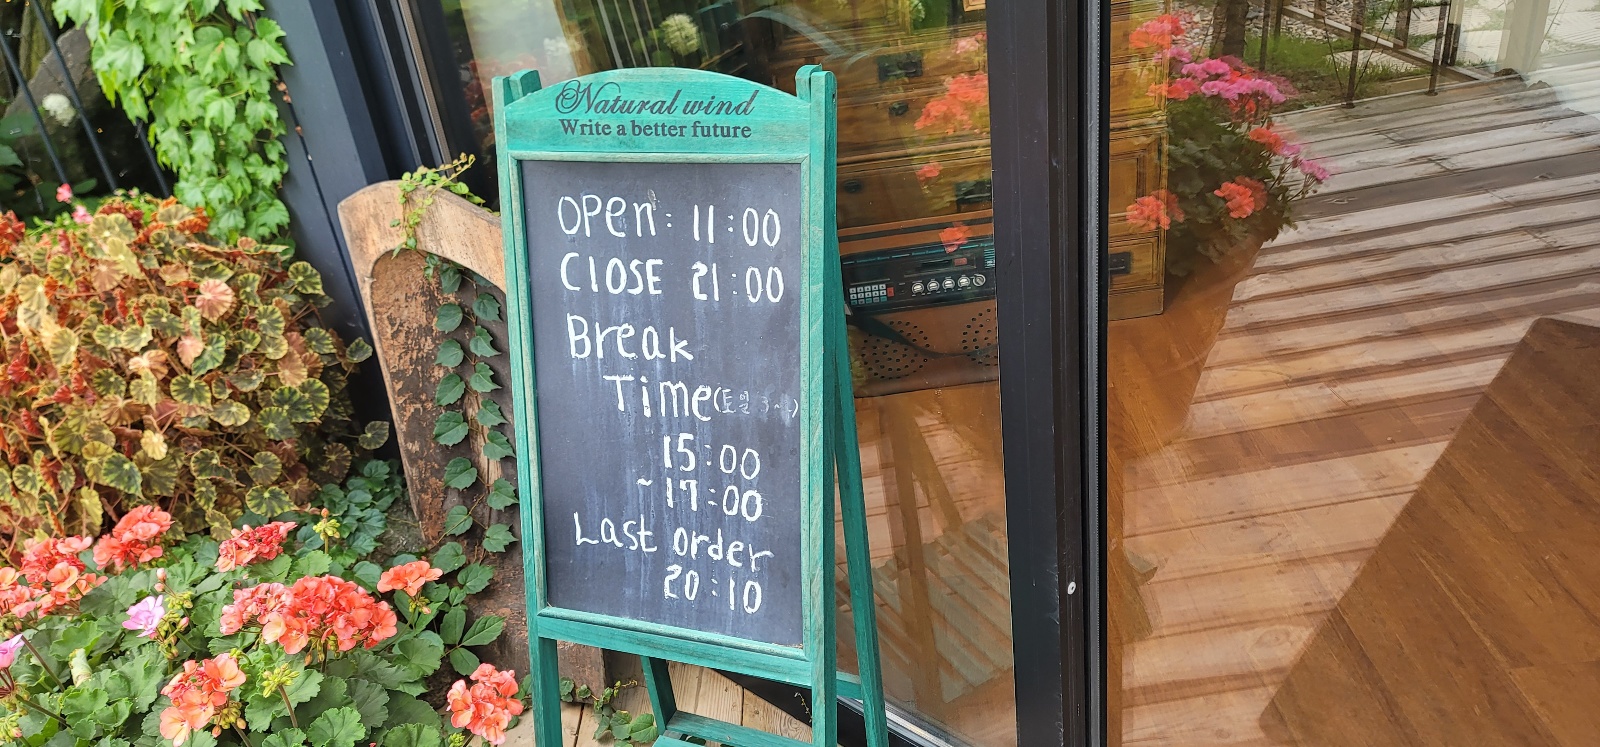 Natural wind
Write a better future
OPen: 11:00
ClOSE 21:00
Break
Time
15:00
~17:00
Last order
20:10